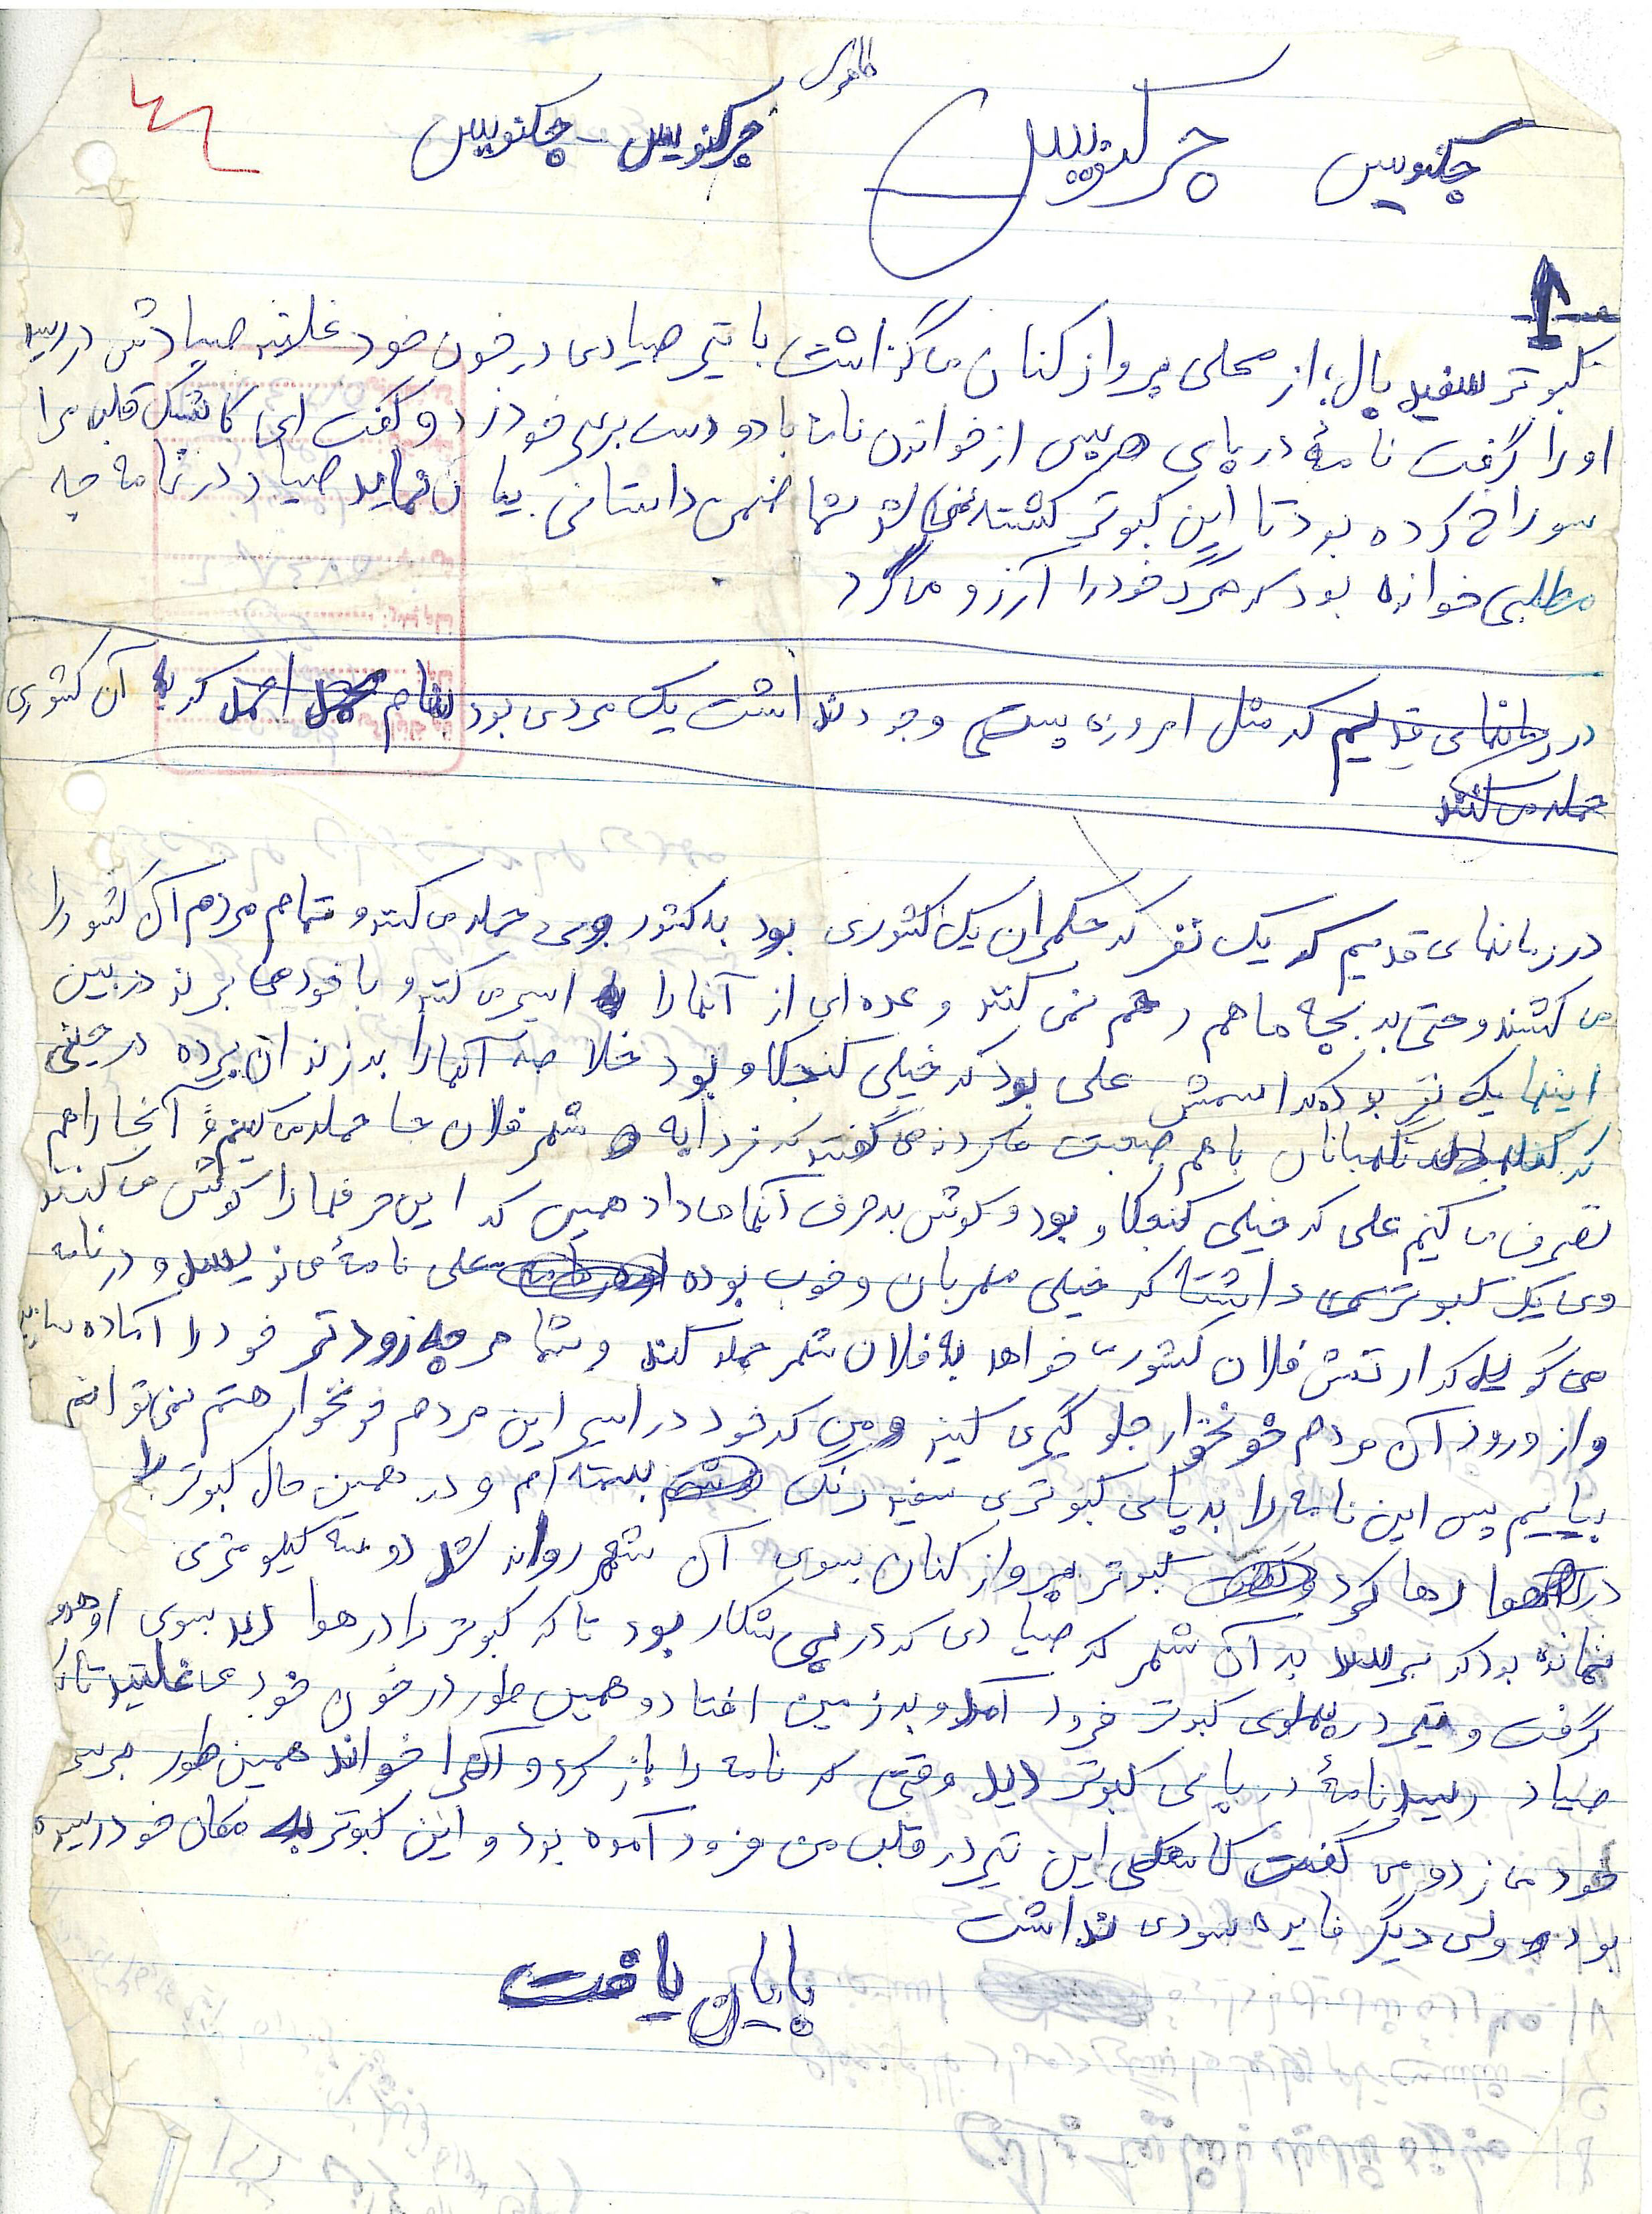 چکنویس چرکنویس چرکنویس - چکنویس
کبوتر سفید بال؛ از محلی پرواز کنان می گذاشت با تیر صیادی در خون خود غلاتید صیادش در رسید
او را گرفت نامهٔ در پای پس از خواندن نامه با دو دست برسر خود زد و گفت ای کاشک قلب مرا
سوراخ کرده بود تا این کبوتر کشته نمی شد شما ضمن داستانی بیان نماید صیاد در نامه چه
مطلبی خوانده بود که مرگ خود را آرزو می کرد
در زمانهای قدیم که مثل امروزه پستی وجود نداشت یک مردی بود بنام احمد که به آن کشوری
حمله می کنند
در زمانهای قدیم که یک نفر که حکمران یک کشوری بود به کشور حمله می کنند و تمام مردم آن کشور را
می کشند و حتی به بچه ها هم رحم نمی کنند و عده ای از آنها را اسیر می کنند و با خود می برند در بین
اینها یک نفر بوده که اسمش علی بود که خیلی کنجکاو بود خلاصه آنها را به زندان برده در حینی
که نگهبانان با هم صحبت می کردند می گفتند که فردا به شهر فلان جا حمله می کنیم و آنجا را هم
تصرف می کنیم علی که خیلی کنجکاو بود و گوش به حرف آنها می داد همین که این حرفها را گوش می کنند
وی یک کبوتر سمی داشتا که خیلی مهربان و خوب بوده علی نامهٔ می نویسد و در نامه
می گوید که ارتش فلان کشور خواهد به فلان شهر حمله کند و شما هر چه زودتر خود را آماده سازید
و از ورود آن مردم خونخوار جلو گیری کنید و من که خود در اسیر این مردم خونخوار هستم نمی توانم
بیایم پس این نامه را به پای کبوتری سفید رنگ بسته ام و در همین حال کبوتر را
در هوا رها کرد کبوتر پرواز کنان بسوی آن شهر روانه شد دو سه کیلو متری
نمانده بود که برسد به آن شهر که صیادی که در پی شکار بود تا که کبوتر را در هوا دید بسوی او هدف
گرفت و تیر در پهلوی کبوتر فرود آمد و به زمین افتاد و همین طور در خون خود می غلتید تا که
صیاد رسید نامهٔ در پای کبوتر دید وقتی که نامه را باز کرد و آنرا خواند همین طور بر سر
خود می زد و می گفت کاشکی این تیر در قلب من فرود آمده بود و این کبوتر به مکان خود رسیده
بود ولی دیگر فایده سودی نداشت
پایان یافت